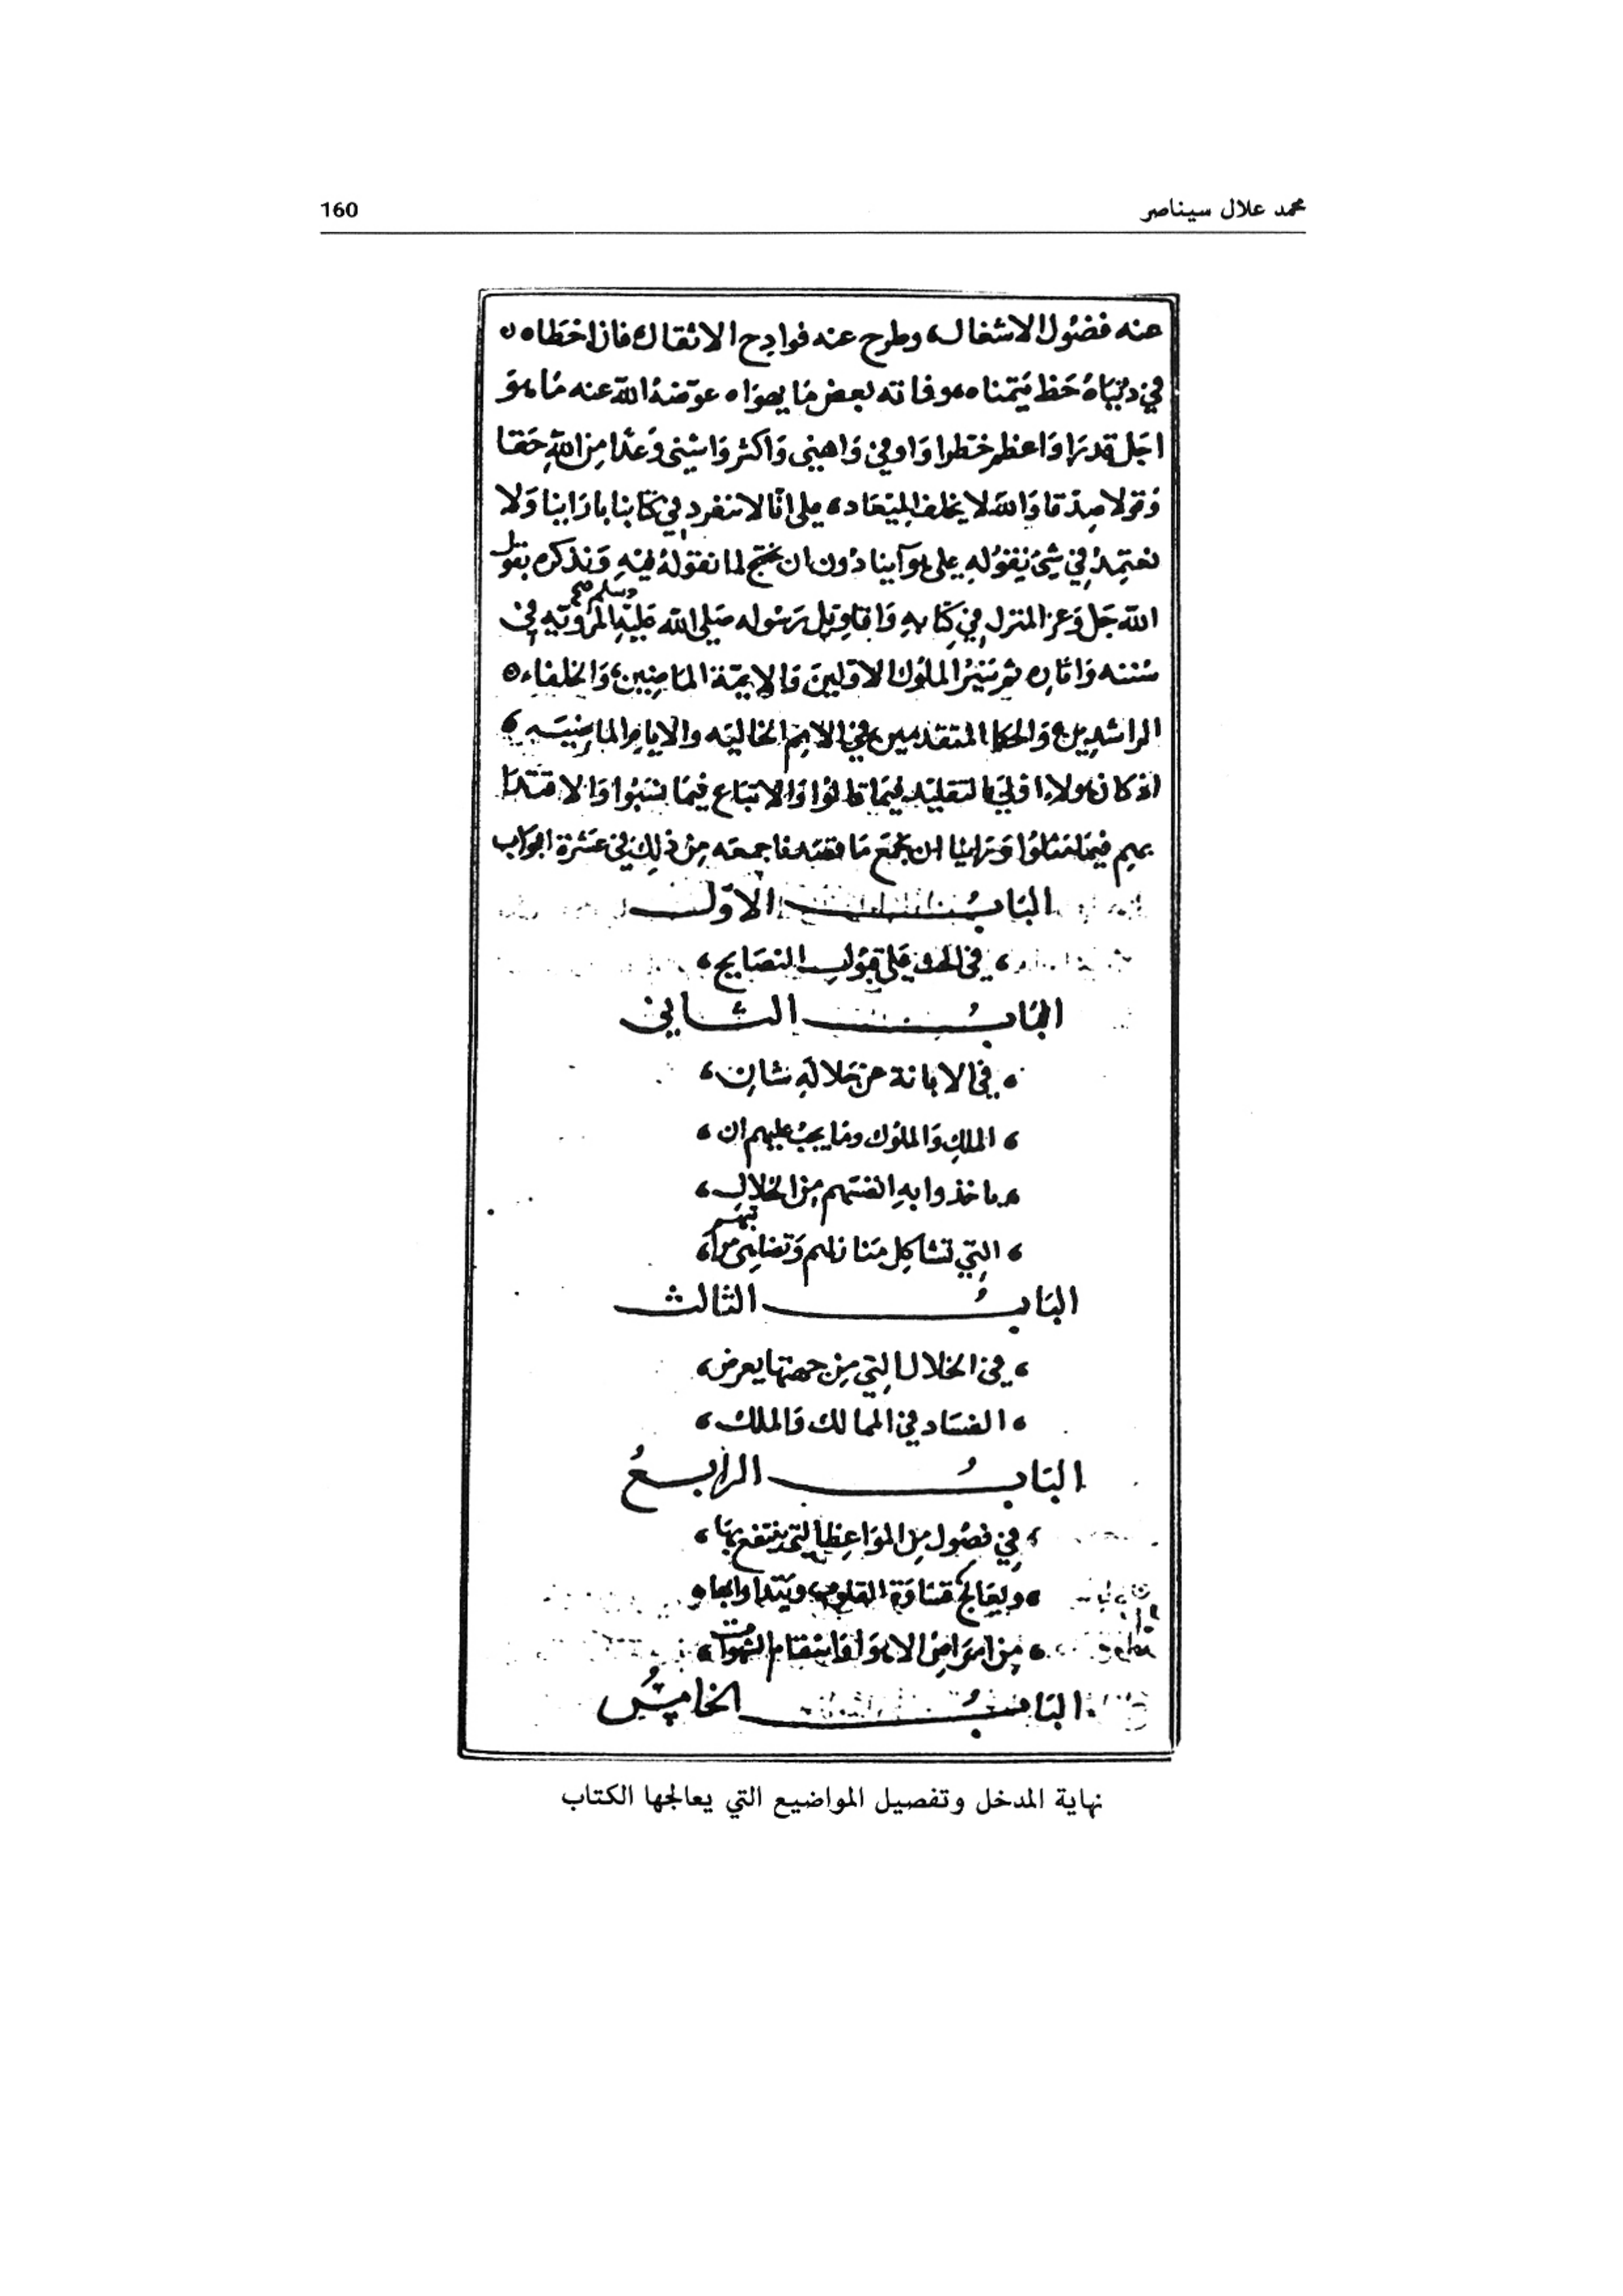 محمد علال سيناصر
160
عنه فضول الاشغال، وطرح عنه فوادح الاثقال فان اخطاه
في دنياه حظ يتمناه وفاته بعض ما يهواه عوّضه الله عنه ما هو
اجل قدرا واعظم خطرا واوفى واهنى واكثر واسنى وعدا من الله حقا
وقولا صدقا والله لا يخلف الميعاد، على انا لا ننفرد في كتابنا باراينا ولا
نعتمد في شئ نقوله على هوآينا دون ان نحتج لما نقوله فيه ونذكره بقول
الله جل وعز المنزل في كتابه واقاويل رسوله صلى الله عليه وسلم المرويّه في
سننه واثاره ثم سير الملوك الاولين والايمّة الماضين، والخلفاء
الراشدين، والحكما المتقدمين في الامم الخاليه والايام الماضيه،
اذ كان هولاء اولى بالتقليد فيما قالوا والاتباع فيما والاقتدا
بهم فيما مثلوا وراينا ان نجمع ما من ذلك في عشرة ابواب
الباب الاوّل
في الحث على قبول النصايح،
الباب الثاني
في الابانة عن جلالة شان،
الملك والملوك وما يجب عليهم ان
ياخذوا به انفسهم من الخلال،
التي تشاكل منازلهم وتضاهى مراتبهم
الباب الثالث
في الخلال التي من جهتها يعرض،
الفساد في الممالك والملك،
الباب الرابع
في فصول من المواعظ التي ينتفع بها،
ويعالج قساوة القلوب ويتداوا بها
من امراض الاهوا واسقام الشهوات،
الباب الخامس
نهاية المدخل وتفصيل المواضيع التي يعالجها الكتاب